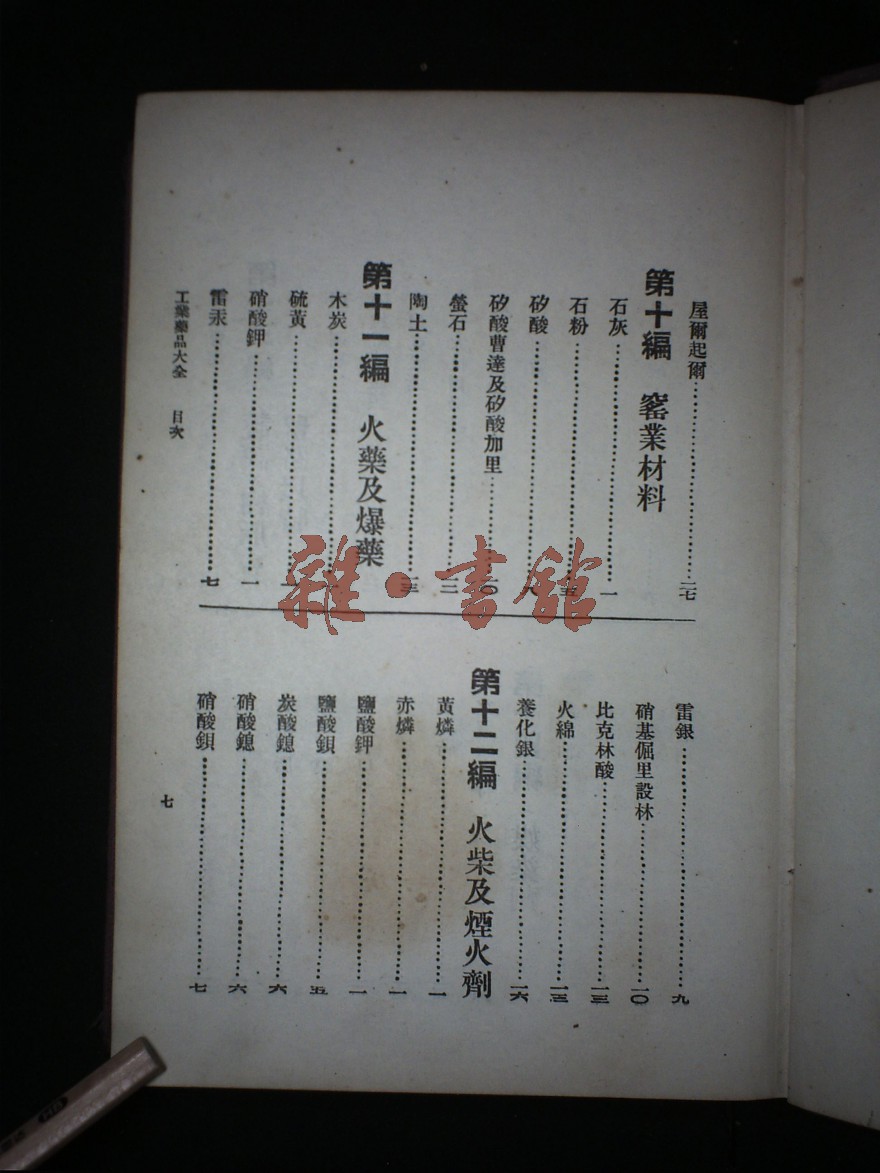 屋爾起爾………二七
第十編　窰業材料
石灰………一
石粉………五
矽酸………八
矽酸曹達及矽酸加里………一〇
螢石………二
陶土………三
第十一編　火藥及爆藥
木炭………
硫黃………
硝酸鉀………一
雷汞………七
雷銀………九
硝基倔里設林………一〇
比克林酸………一三
火綿………一三
養化銀………一六
第十二編　火柴及煙火劑
黃燐………一
赤燐………一
鹽酸鉀………一
鹽酸鋇………五
炭酸鎴………六
硝酸鎴………六
硝酸鋇………七
工業藥品大全　目次
七
雜·書館